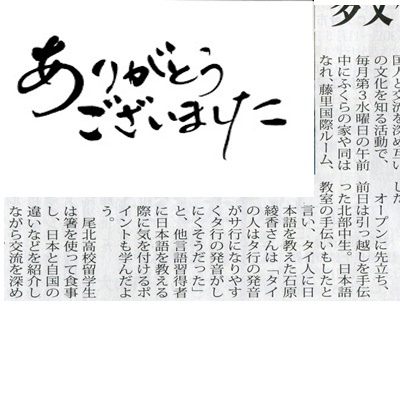 ありがとう
ございました
国人と交流を深め互い
の文化を知る活動で、
毎月第3水曜日の午前
中にふくらの家や同は
なれ、藤里国際ルーム、
した
オープンに先立ち、
前日は引っ越しを手伝
った北部中生。日本語
教室の手伝いもしたと
言い、タイ人に日
本語を教えた石原
綾香さんは「タイ
の人はタ行の発音
がサ行になりやす
くタ行の発音がし
にくそうだった」
と、他言語習得者
に日本語を教える
際に気を付けるポ
イントも学んだよ
う。
尾北高校留学生
は箸を使って食事
し、日本と自国の
違いなどを紹介し
ながら交流を深め